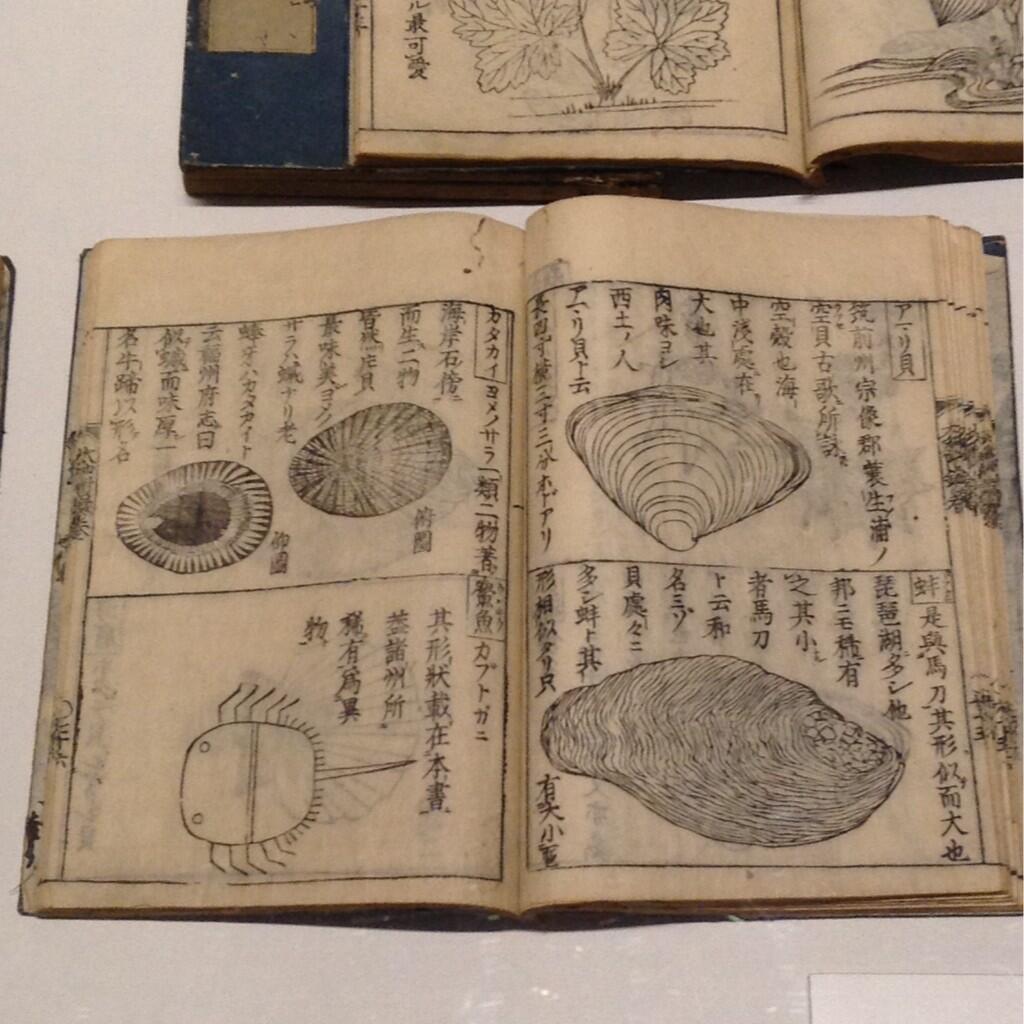 ル最可愛
アマリ貝
筑前州宗像郡蓑生浦ノ
空貝古歌所詠
空殻也海
中淺處在
大也其
肉味ヨシ
西土ノ人
アマリ貝ト云
長
寸
三寸三分ホドアリ
蚌是與馬刀其形似而大也
琵琶湖多シ他
邦ニモ稀有
之其小
者馬刀
ト云和
名ミゾ
貝處々ニ
多シ蚌ト其
形相似タリ只
有大小
カタカイヨメノサラ一類二物著
海岸石傍
而生二物
皆
貝
最味美ヨメノ
サラハ蠣ナリ老
蜯牙ハカタカイト
云福州府志曰
似蠣而味厚一
名牛蹄以形名
俯圖
仰圖
鱟魚カブトガニ
其形狀載在本書
蓋諸州所
稀有爲異
物